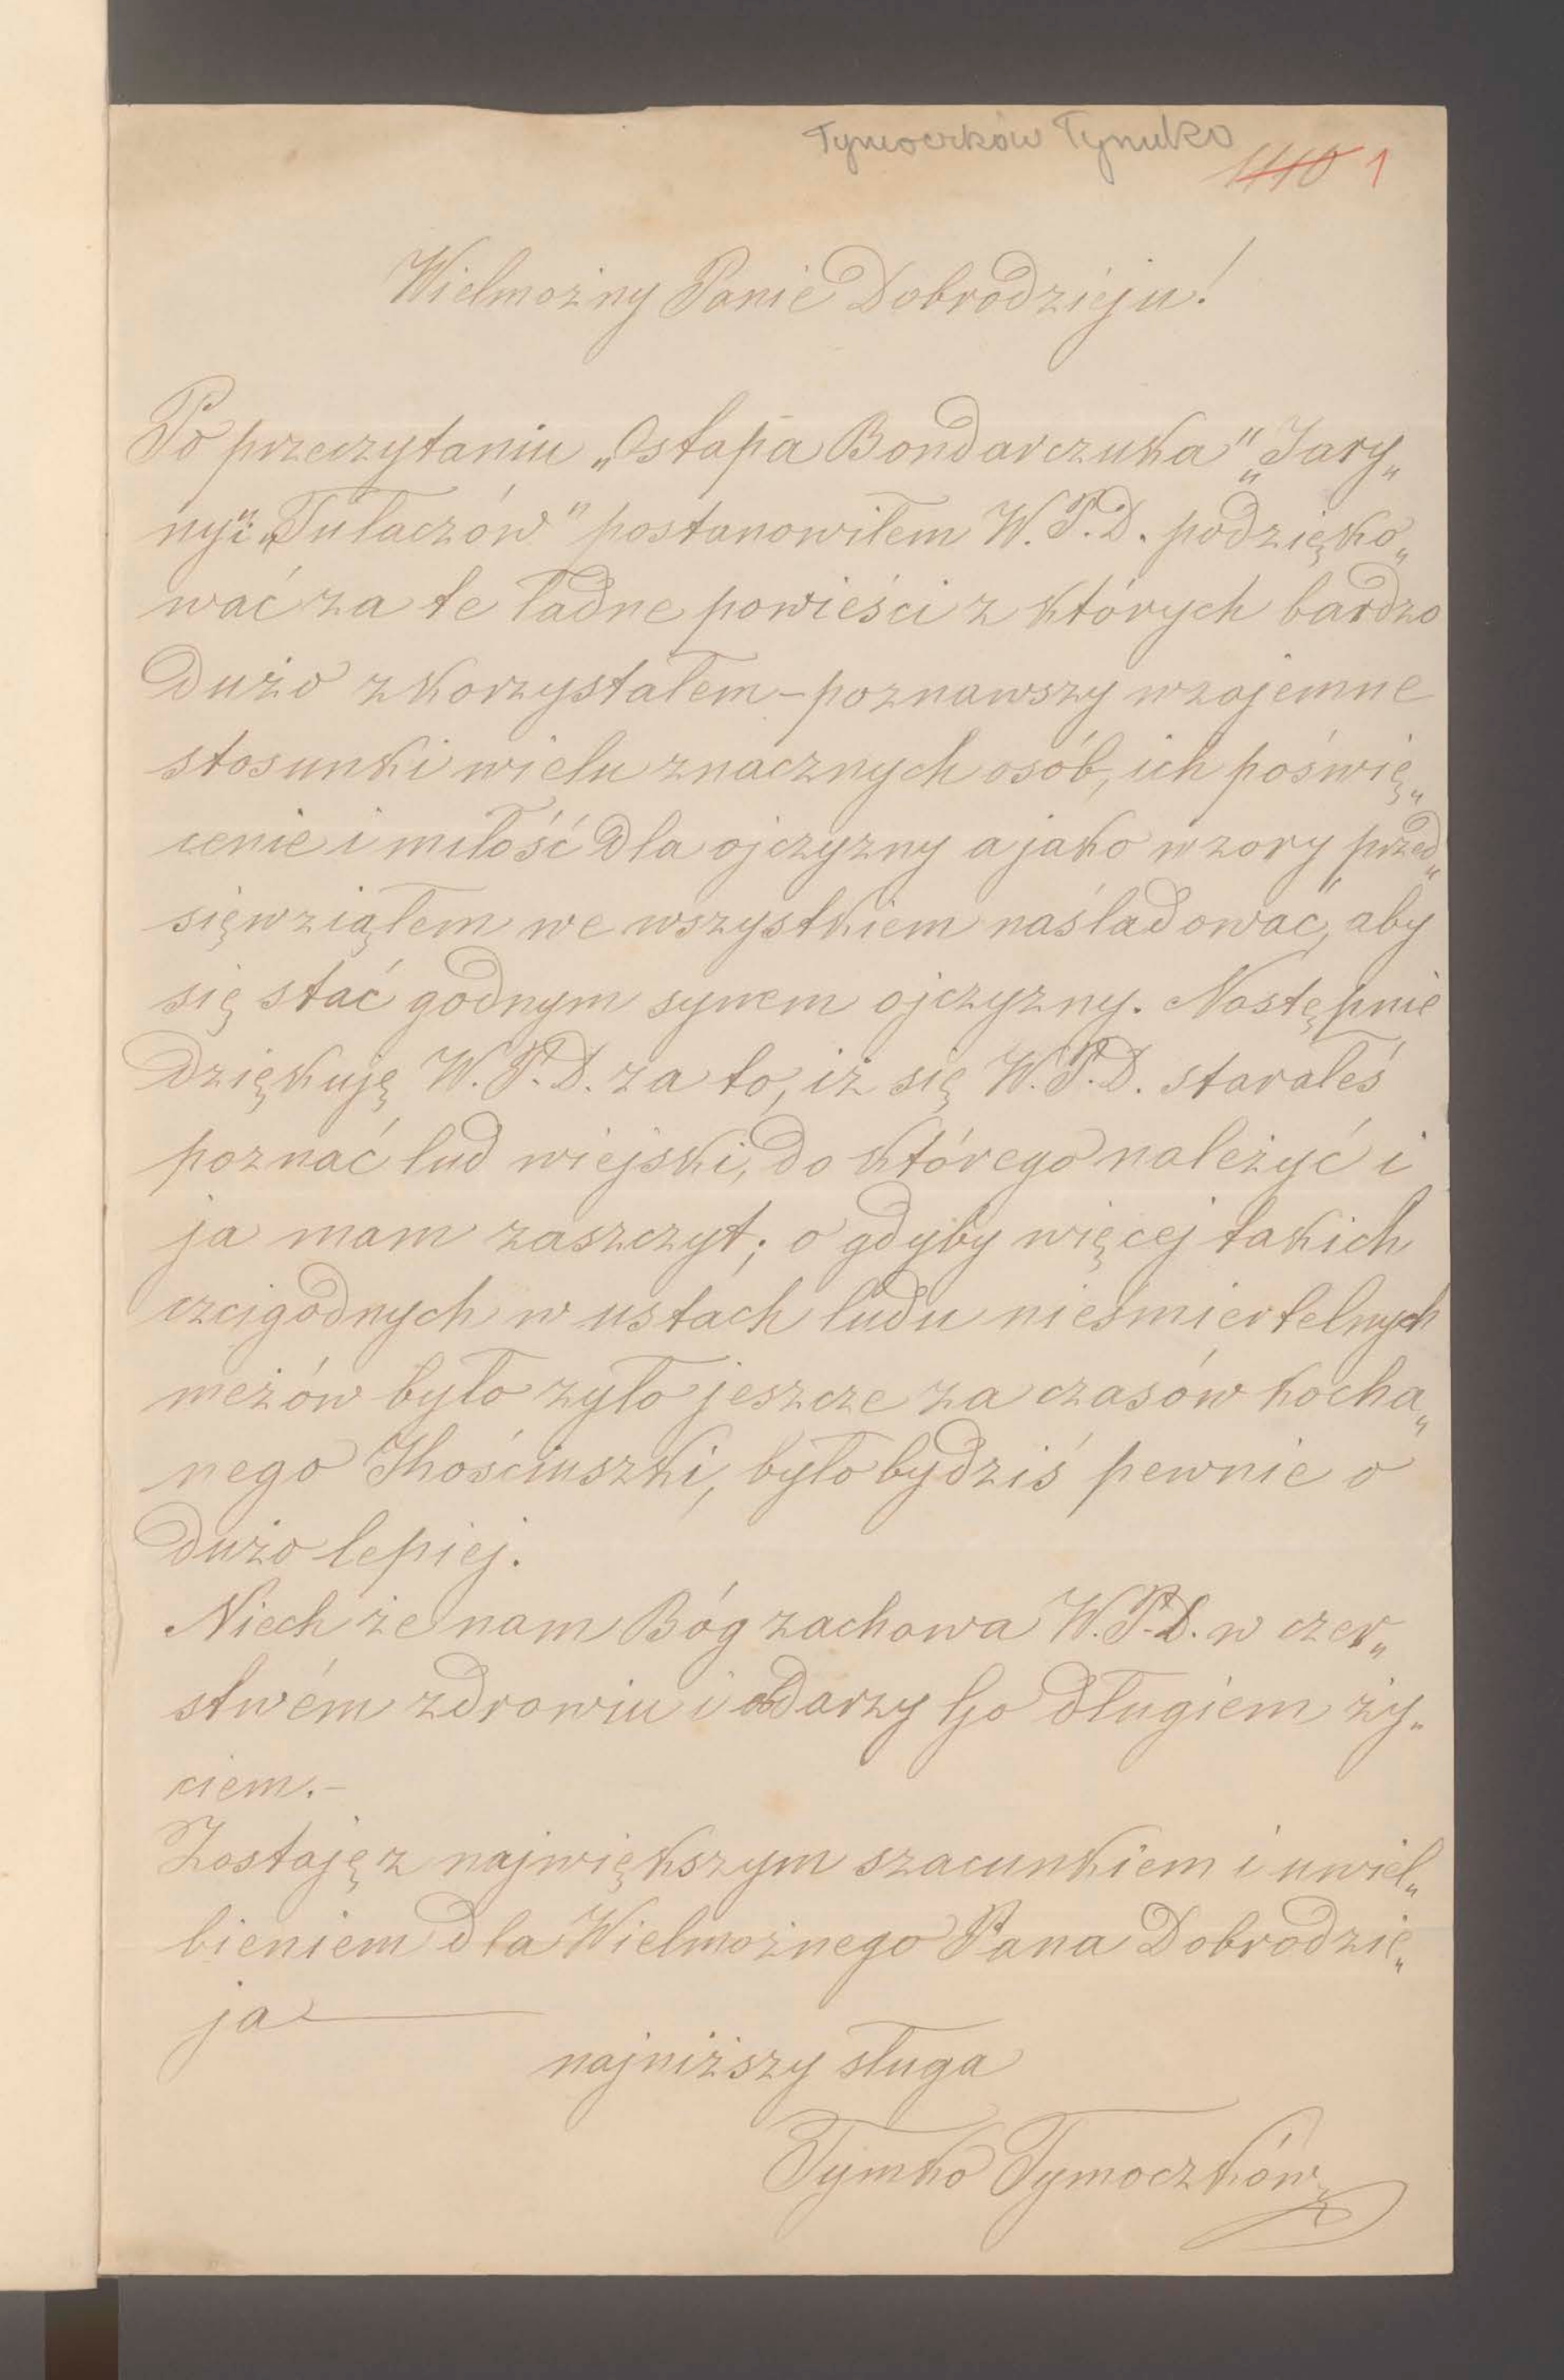 Tymoczków Tymko
1110 1
Wielmożny Panie Dobrodzieju!
Po przeczytaniu „Ostapa Bondarczuka" „Jary„
ny" i „Tułaczów" postanowiłem W. P. D. podzięko„
wać za te ładne powieści z których bardzo
dużo zkorzystałem – poznawszy wzajemne
stosunki wielu znacznych osób, ich poświę„
cenie i miłość dla ojczyzny a jako wzory przed„
sięwziąłem we wszystkiem naśladować, aby
się stać godnym synem ojczyzny. Następnie
dziękuję W. P. D. za to, iż się W. P. D. starałeś
poznać lud wiejski, do którego należyć i
ja mam zaszczyt; o gdyby więcej takich
czcigodnych w ustach ludu nieśmiertelnych
meżów było żyło jeszcze za czasów kocha„
nego Kościuszki, byłoby dziś pewnie o
dużo lepiej.
Niech że nam Bóg zachowa W. P. D. w czer„
stwém zdrowiu i obdarzy Go długiem ży„
ciem. –
Zostaję z największym szacunkiem i uwiel„
bieniem dla Wielmożnego Pana Dobrodzie„
ja
najniższy sługa
Tymko Tymoczków